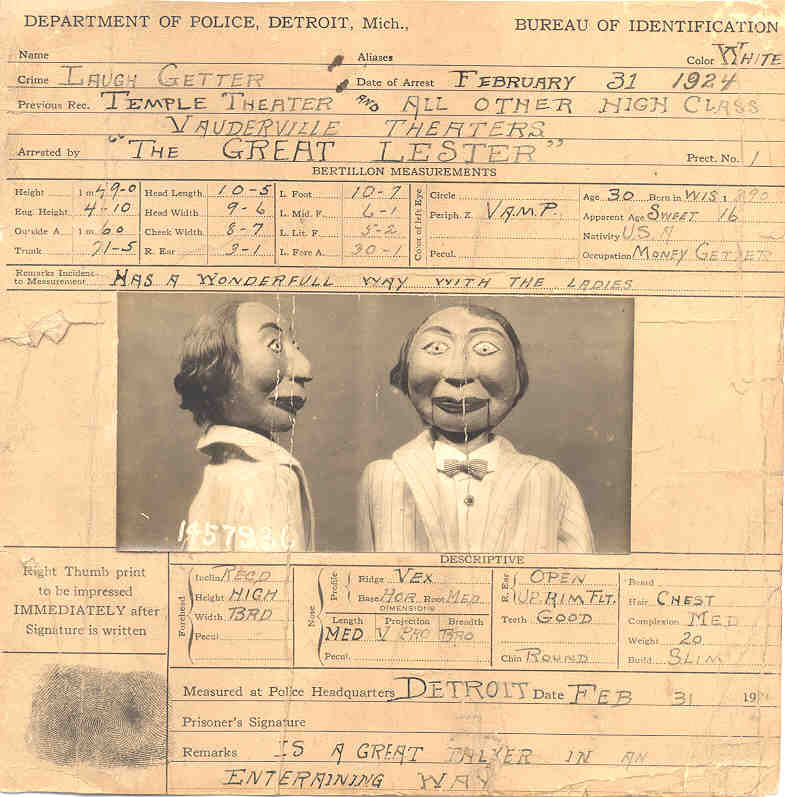 DEPARTMENT OF POLICE, DETROIT, Mich., BUREAU OF IDENTIFICATION
Name Aliases Color WHITE
Crime LAUGH GETTER Date of Arrest FEBRUARY 31 1924
Previous Rec. TEMPLE THEATER AND ALL OTHER HIGH CLASS
VAUDERVILLE THEATERS
Arrested by "THE GREAT LESTER" Prect. No. 1
BERTILLON MEASUREMENTS
Height 1 m 49-0 Head Length 10-5 L. Foot 10-7 Circle Age 30 Born in WIS 1890
Eng. Height 4-10 Head Width 9-6 L. Mid. F. 6-1 Periph. Z. V.A.M.P. Apparent Age SWEET 16
Outside A. 1 m. 60 Cheek Width 8-7 L. Lit. F. 5-2 Nativity U.S.A
Trunk 71-5 R. Ear 3-1 L. Fore A. 30-1 Color of left Eye Pecul. Occupation MONEY GETTER
Remarks Incident to Measurement HAS A WONDERFULL WAY WITH THE LADIES
1457986
DESCRIPTIVE
Right Thumb print
to be impressed
IMMEDIATELY after
Signature is written
Forehead
Inclin RECD
Height HIGH
Width BRD
Pecul
Nose
Profile
Ridge VEX
Base HOR. Root MED
DIMENSIONS
Length Projection Breadth
MED V PRO BRO
Pecul.
R. Ear
OPEN
UP. RIM FLT.
Teeth GOOD
Chin ROUND
Beard
Hair CHEST
Complexion MED
Weight 20
Build SLIM
Measured at Police Headquarters DETROIT Date FEB 31 19
Prisoner's Signature
Remarks IS A GREAT TALKER IN AN
ENTERAINING WAY